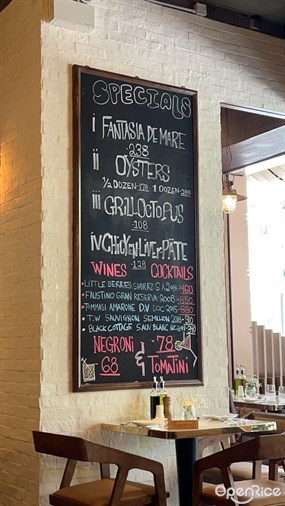 SPECIALS
i FANTASIA DE MARE
238
ii OYSTERS
1/2 DOZEN-178 1 DOZEN-288
iii GRILL OCTOPUS
108
iv CHICKEN LIVER PÂTE
138
WINES COCKTAILS
LITTLE BERRIES SHIRAZ S.A
FAUSTINO GRAN RESERVA 2008
TOMMASI AMARONE D.V DOC 2015
T.W SAUVIGNON SEMILLON
BLACK COTTAGE SAUV BLANC
NEGRONI 78
68 & TOMATINI
OpenRice